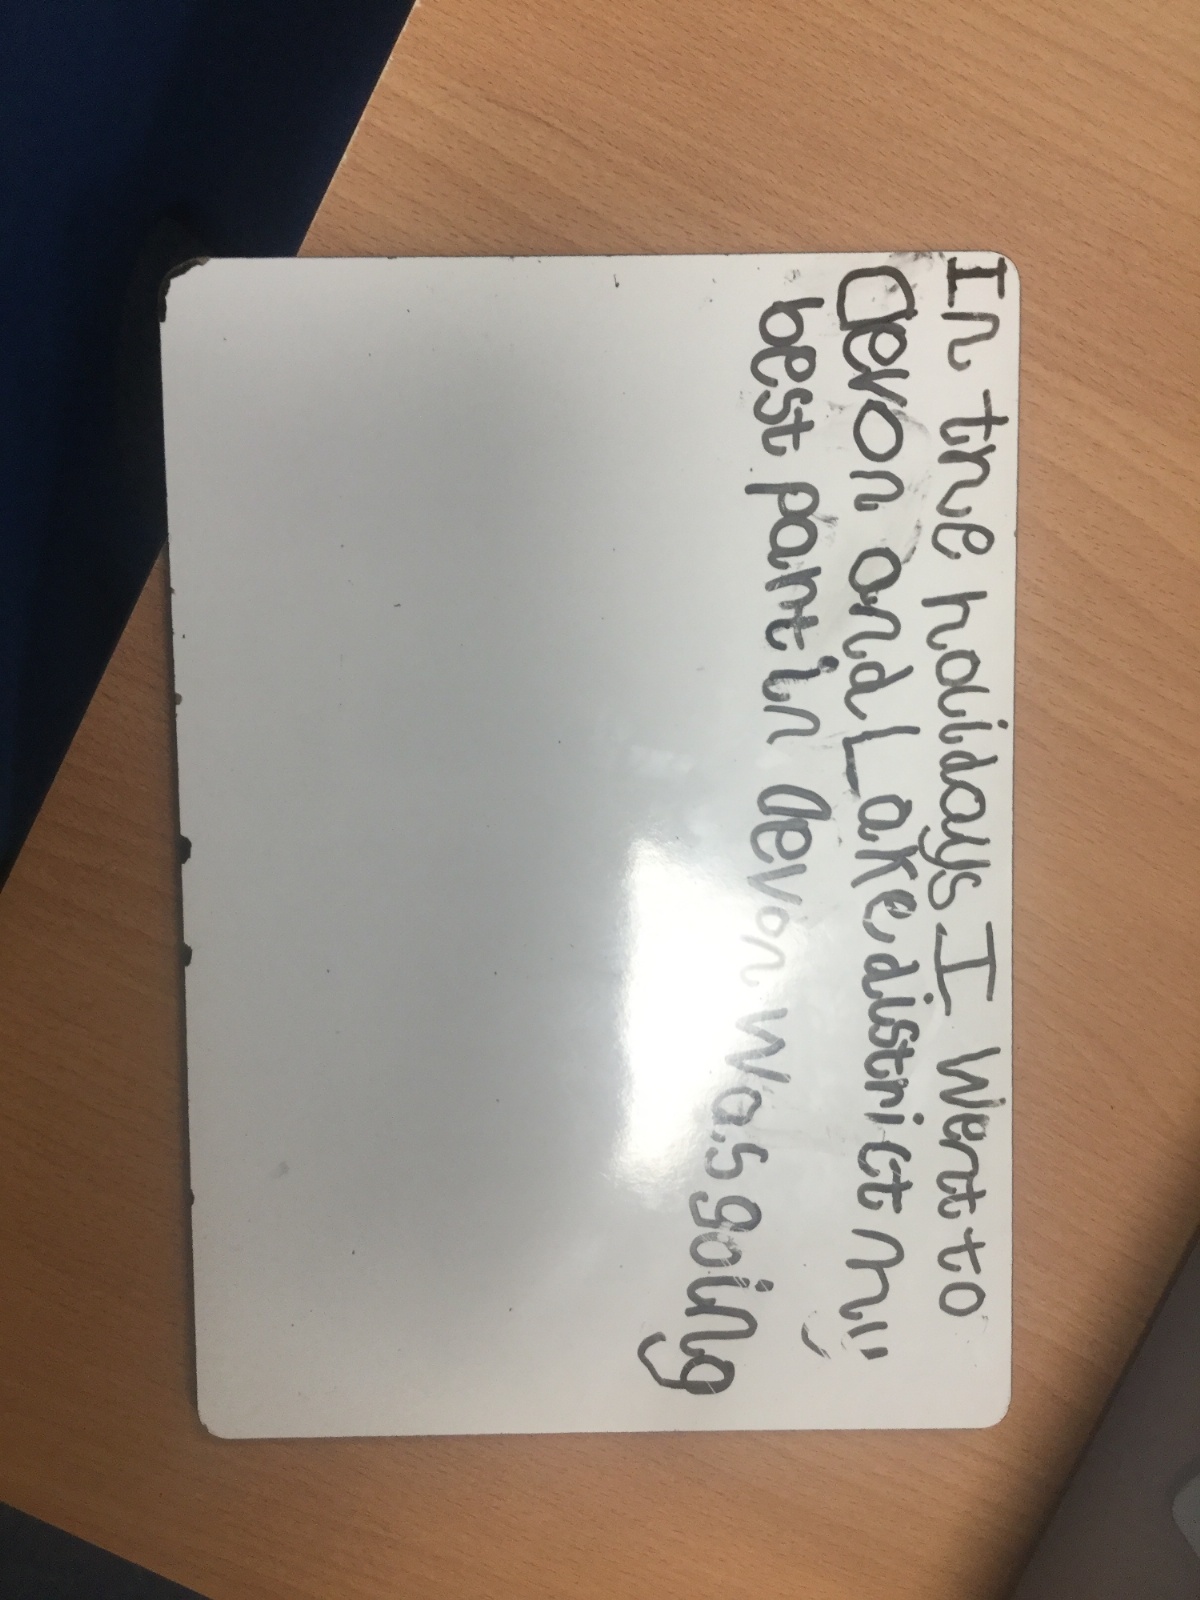 In the holidays I went to
Devon and Lake district my
best part in devon was going